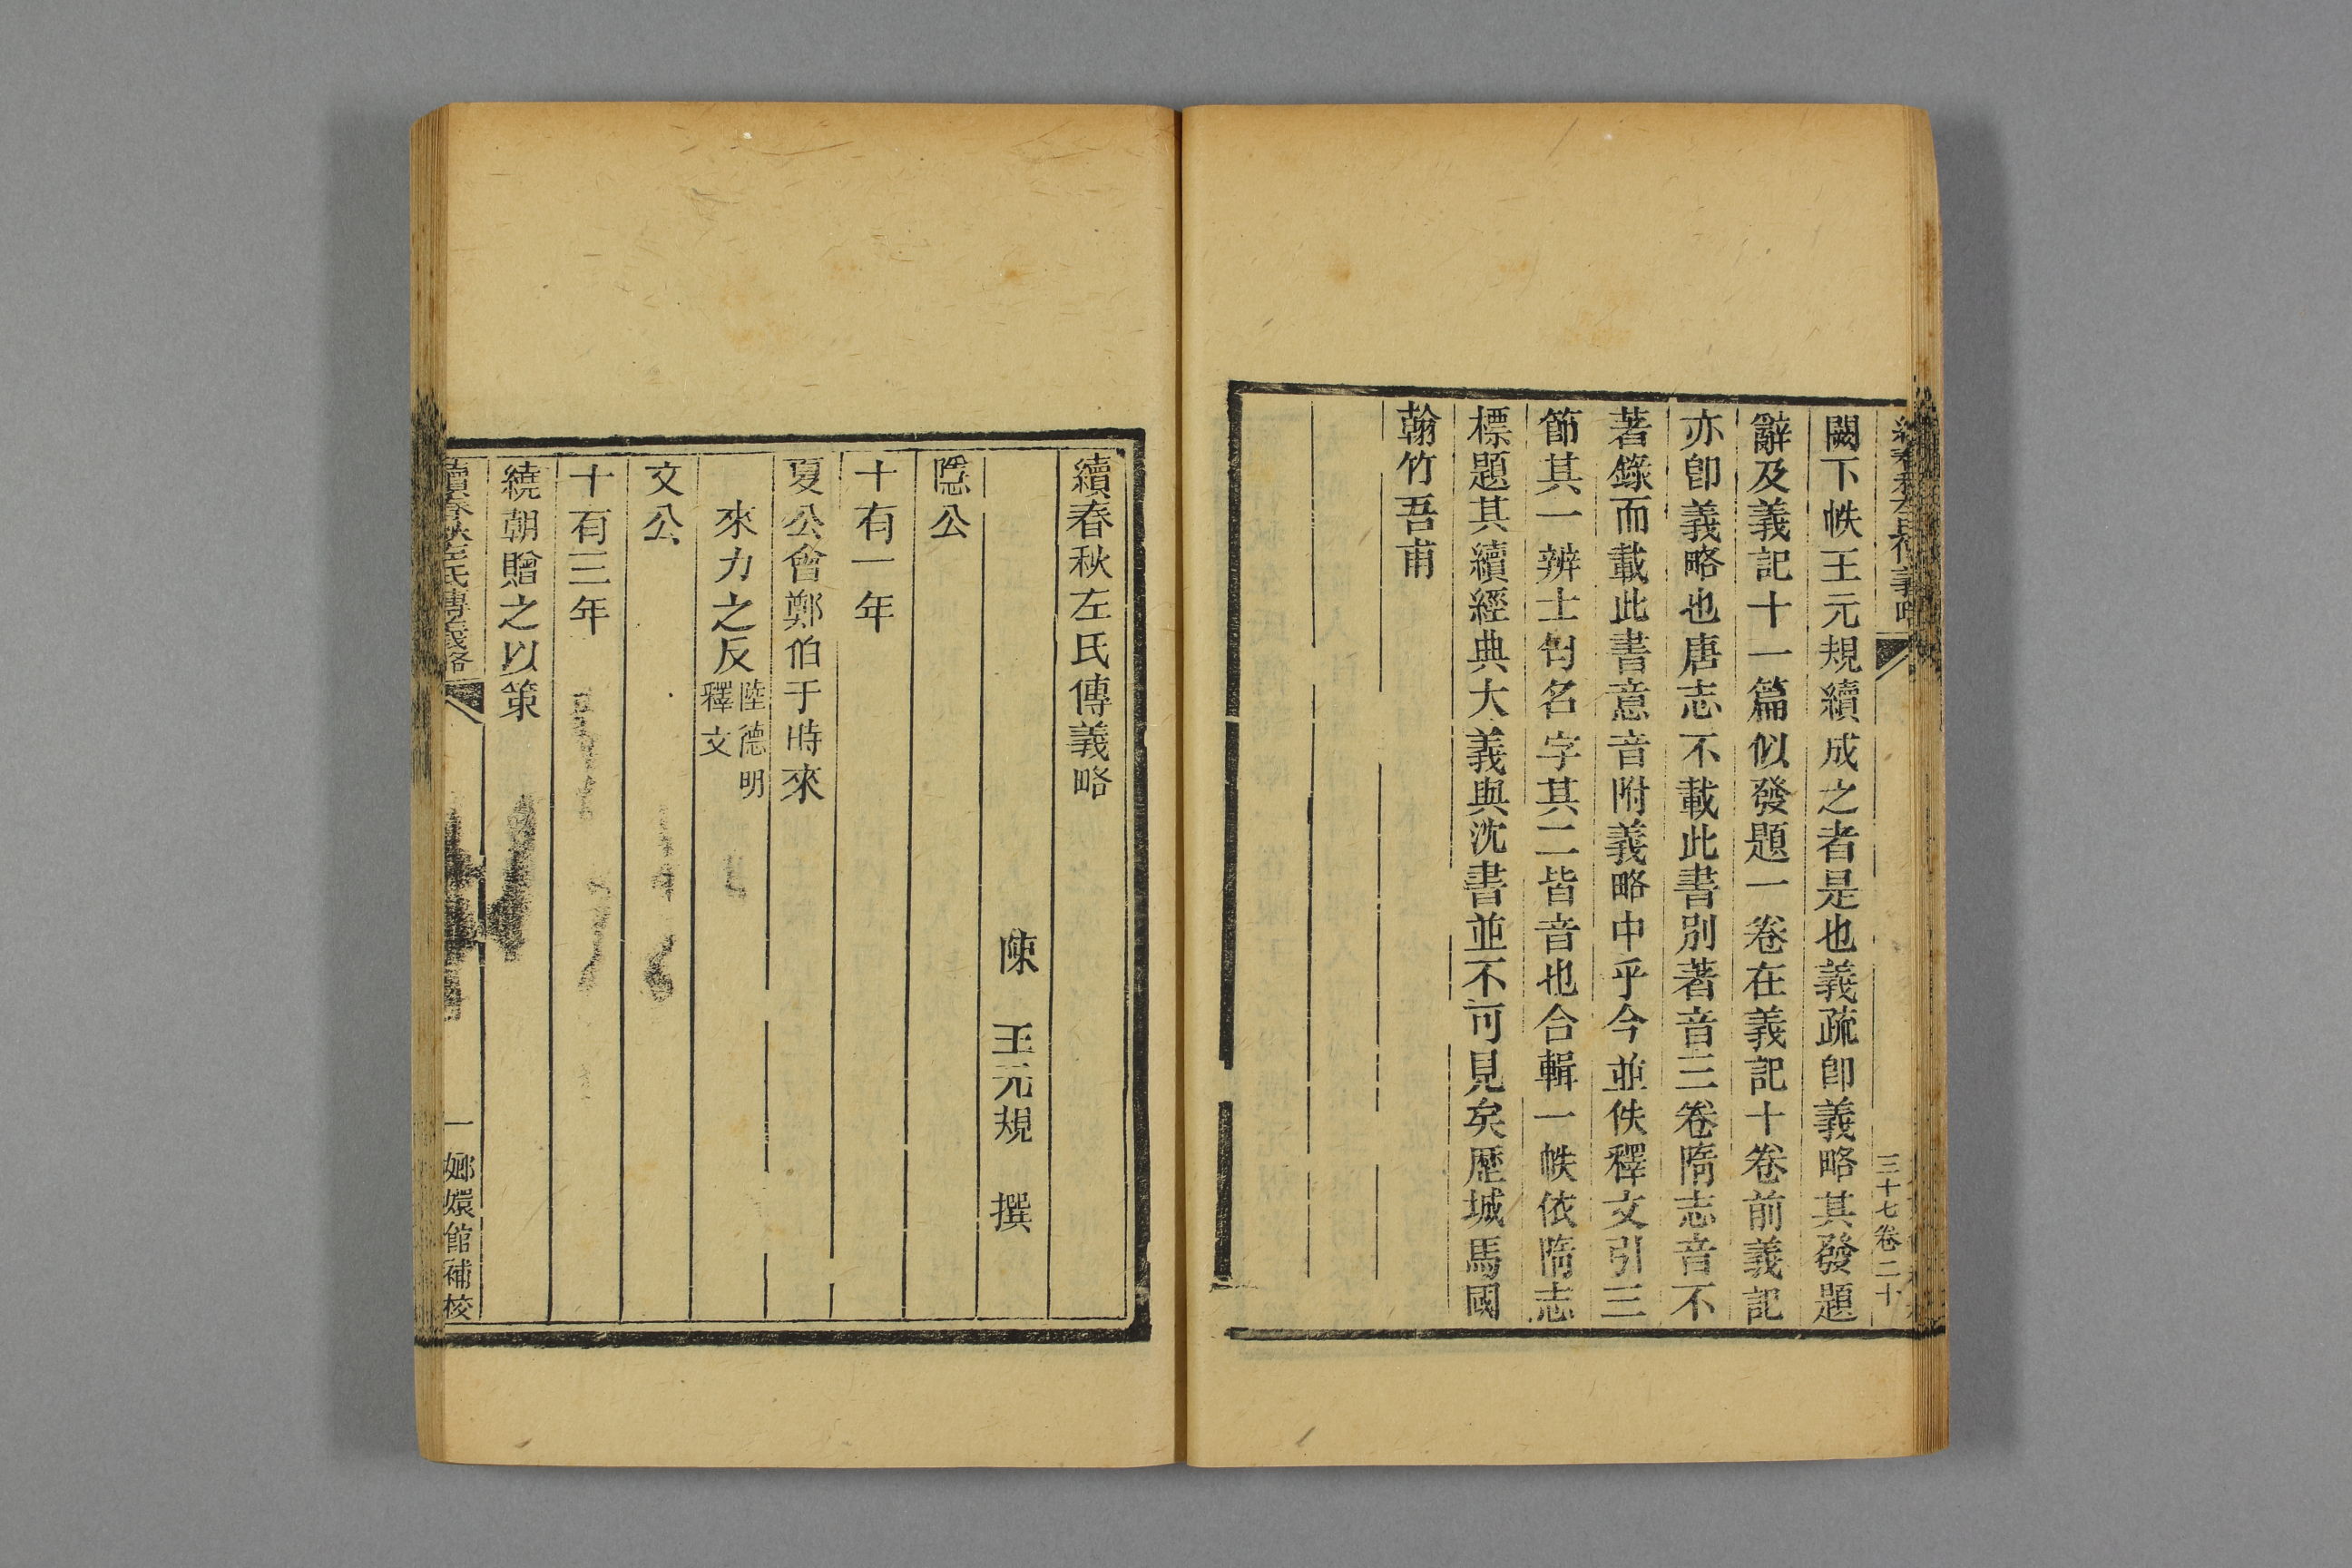 三十七卷二十
闕下帙王元規續成之者是也義疏卽義略其發題
辭及義記十一篇似發題一卷在義記十卷前義記
亦卽義略也唐志不載此書別著音三卷隋志音不
著錄而載此書意音附義略中乎今並佚釋文引三
節其一辨士匄名字其二皆音也合輯一帙依隋志
標題其續經典大義與沈書並不可見矣歷城馬國
翰竹吾甫
續春秋左氏傳義略
陳 王元規 撰
隱公
十有一年
夏公會鄭伯于時來
來力之反陸德明
釋文
文公
十有三年
繞朝贈之以策
續春秋左氏傳義略 一 嫏嬛館補校